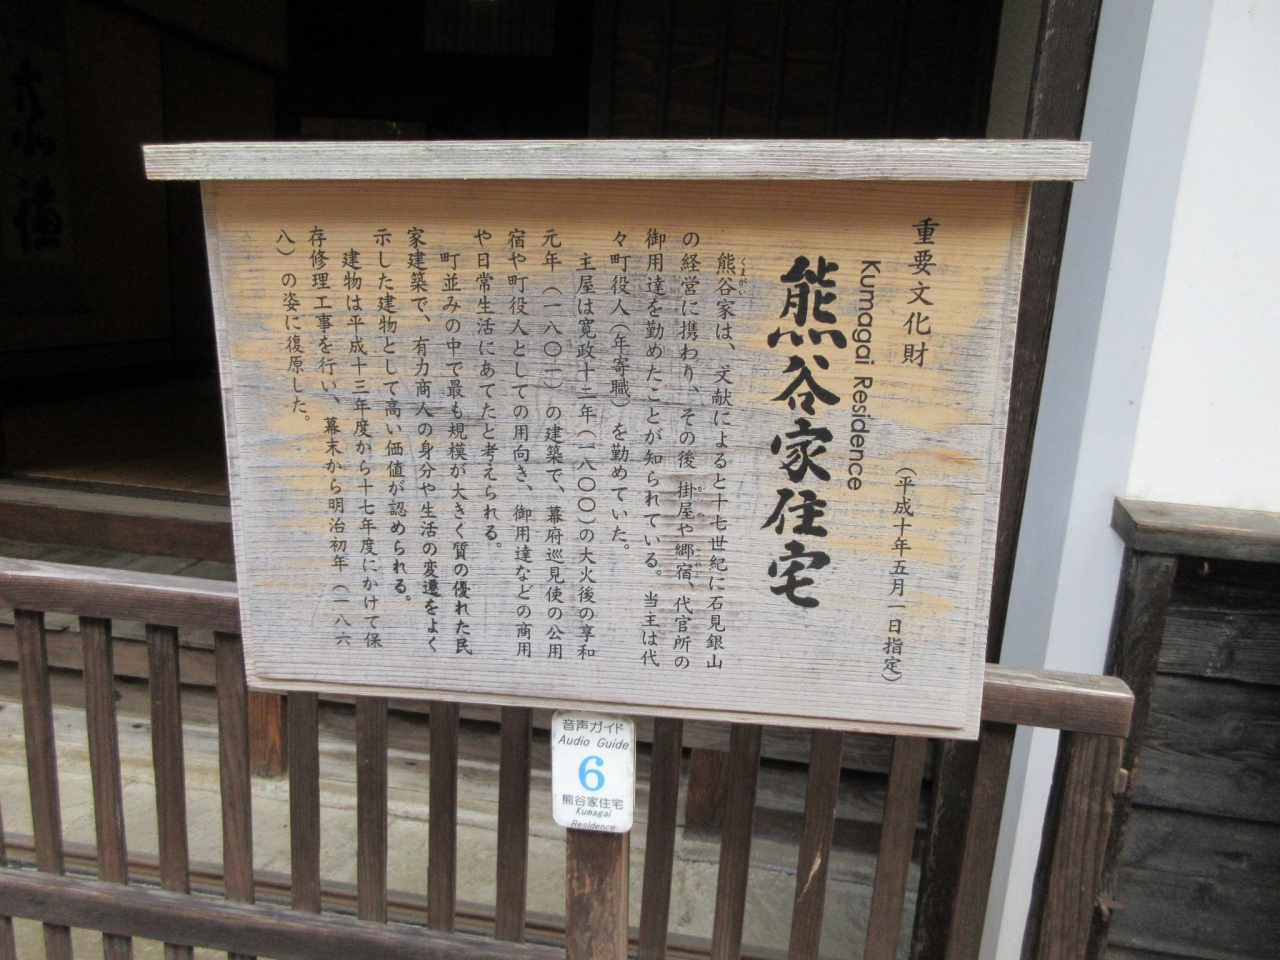 重要文化財
(平成十年五月一日指定)
Kumagai Residence
熊谷家住宅
くまがい
熊谷家は、文献によると十七世紀に石見銀山
の経営に携わり、その後 掛屋や郷宿、代官所の
御用達を勤めたことが知られている。当主は代
々町役人(年寄職)を勤めていた。
主屋は寛政十二年(一八〇〇)の大火後の享和
元年(一八〇一)の建築で、幕府巡見使の公用
宿や町役人としての用向き、御用達などの商用
や日常生活にあてたと考えられる。
町並みの中で最も規模が大きく質の優れた民
家建築で、有力商人の身分や生活の変遷をよく
示した建物として高い価値が認められる。
建物は平成十三年度から十七年度にかけて保
存修理工事を行い、幕末から明治初年(一八六
八)の姿に復原した。
音声ガイド
Audio Guide
6
熊谷家住宅
Kumagai
Residence